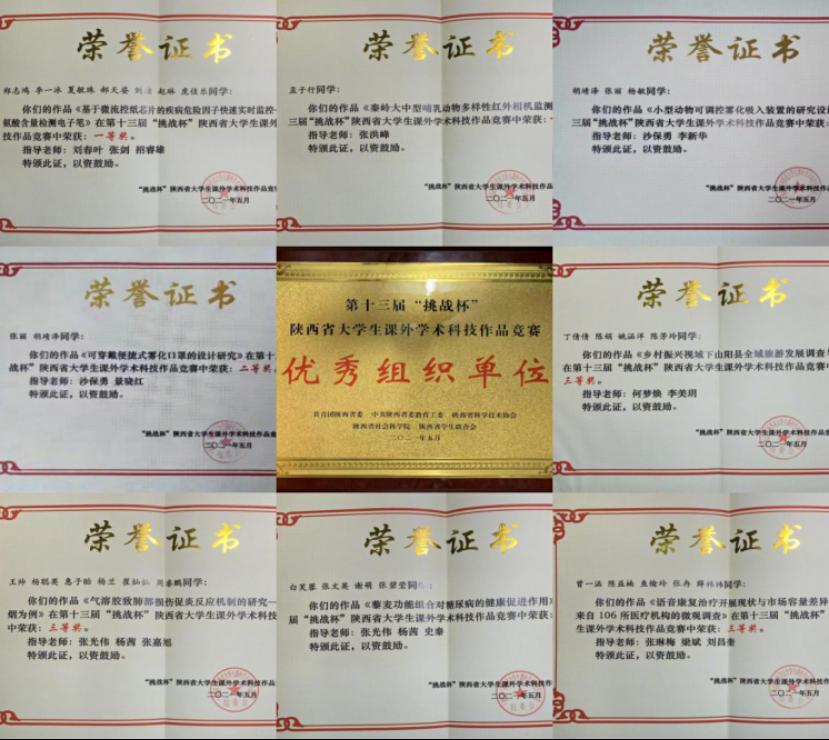 荣誉证书
郑志鸿 李一冰 夏敏珠 郝天姿 刘洁 赵琳 庞佳乐同学：
你们的作品《基于微流控纸芯片的疾病危险因子快速实时监控
氨酸含量检测电子笔》在第十三届“挑战杯”陕西省大学生课外
技作品竞赛中荣获：一等奖。
指导老师：刘春叶 张剑 招睿雄
特颁此证，以资鼓励。
“挑战杯”陕西省大学生课外学术科技作品竞
二〇二一年五月
荣誉证书
孟子行同学：
你们的作品《秦岭大中型哺乳动物多样性红外相机监测
三届“挑战杯”陕西省大学生课外学术科技作品竞赛中荣获：
指导老师：张洪峰
特颁此证，以资鼓励。
“挑战杯”陕西省大学生课外学术科技作品
二〇二一年五月
荣誉证书
胡靖泽 张丽 杨敏同学：
你们的作品《小型动物可调控雾化吸入装置的研究设
三届“挑战杯”陕西省大学生课外学术科技作品竞赛中荣获：
指导老师：沙保勇 李新华
特颁此证，以资鼓励。
“挑战杯”陕西省大学生课外学术科技作品
二〇二一年五月
荣誉证书
张丽 胡靖泽同学：
你们的作品《可穿戴便捷式雾化口罩的设计研究》在第十
战杯”陕西省大学生课外学术科技作品竞赛中荣获：二等奖。
指导老师：沙保勇 景晓红
特颁此证，以资鼓励。
“挑战杯”陕西省大学生课外学术科技作品竞
二〇二一年五月
第十三届“挑战杯”
陕西省大学生课外学术科技作品竞赛
优秀组织单位
共青团陕西省委 中共陕西省委教育工委 陕西省科学技术协会
陕西省社会科学院 陕西省学生联合会
二〇二一年五月
荣誉证书
丁倩倩 陈娟 姚涵洋 陈芳玲同学：
你们的作品《乡村振兴视域下山阳县全域旅游发展调查
在第十三届“挑战杯”陕西省大学生课外学术科技作品竞赛中
三等奖。
指导老师：何梦焕 李美玥
特颁此证，以资鼓励。
“挑战杯”陕西省大学生课外学术科技作品
二〇二一年五月
荣誉证书
王帅 杨聪英 惠子贻 杨兰 崔灿灿 周睿鹏同学：
你们的作品《气溶胶致肺部损伤促炎反应机制的研究—
烟为例》在第十三届“挑战杯”陕西省大学生课外学术科技
中荣获：三等奖。
指导老师：张光伟 杨茜 张嘉旭
特颁此证，以资鼓励。
“挑战杯”陕西省大学生课外学术科技作品
二〇二一年五月
荣誉证书
白芙蓉 张文英 谢萌 张碧莹同学：
你们的作品《藜麦功能组合对糖尿病的健康促进作用》
届“挑战杯”陕西省大学生课外学术科技作品竞赛中荣获：
指导老师：张光伟 杨茜 史泰
特颁此证，以资鼓励。
“挑战杯”陕西省大学生课外学术科技作品
二〇二一年五月
荣誉证书
曾一涵 陈益楠 袁愉玲 张冉 薛祎祎同学：
你们的作品《语音康复治疗开展现状与市场容量差异
来自106所医疗机构的微观调查》在第十三届“挑战杯”
生课外学术科技作品竞赛中荣获：三等奖。
指导老师：张琳梅 梁斌 刘昌奎
特颁此证，以资鼓励。
“挑战杯”陕西省大学生课外学术科技作品
二〇二一年五月